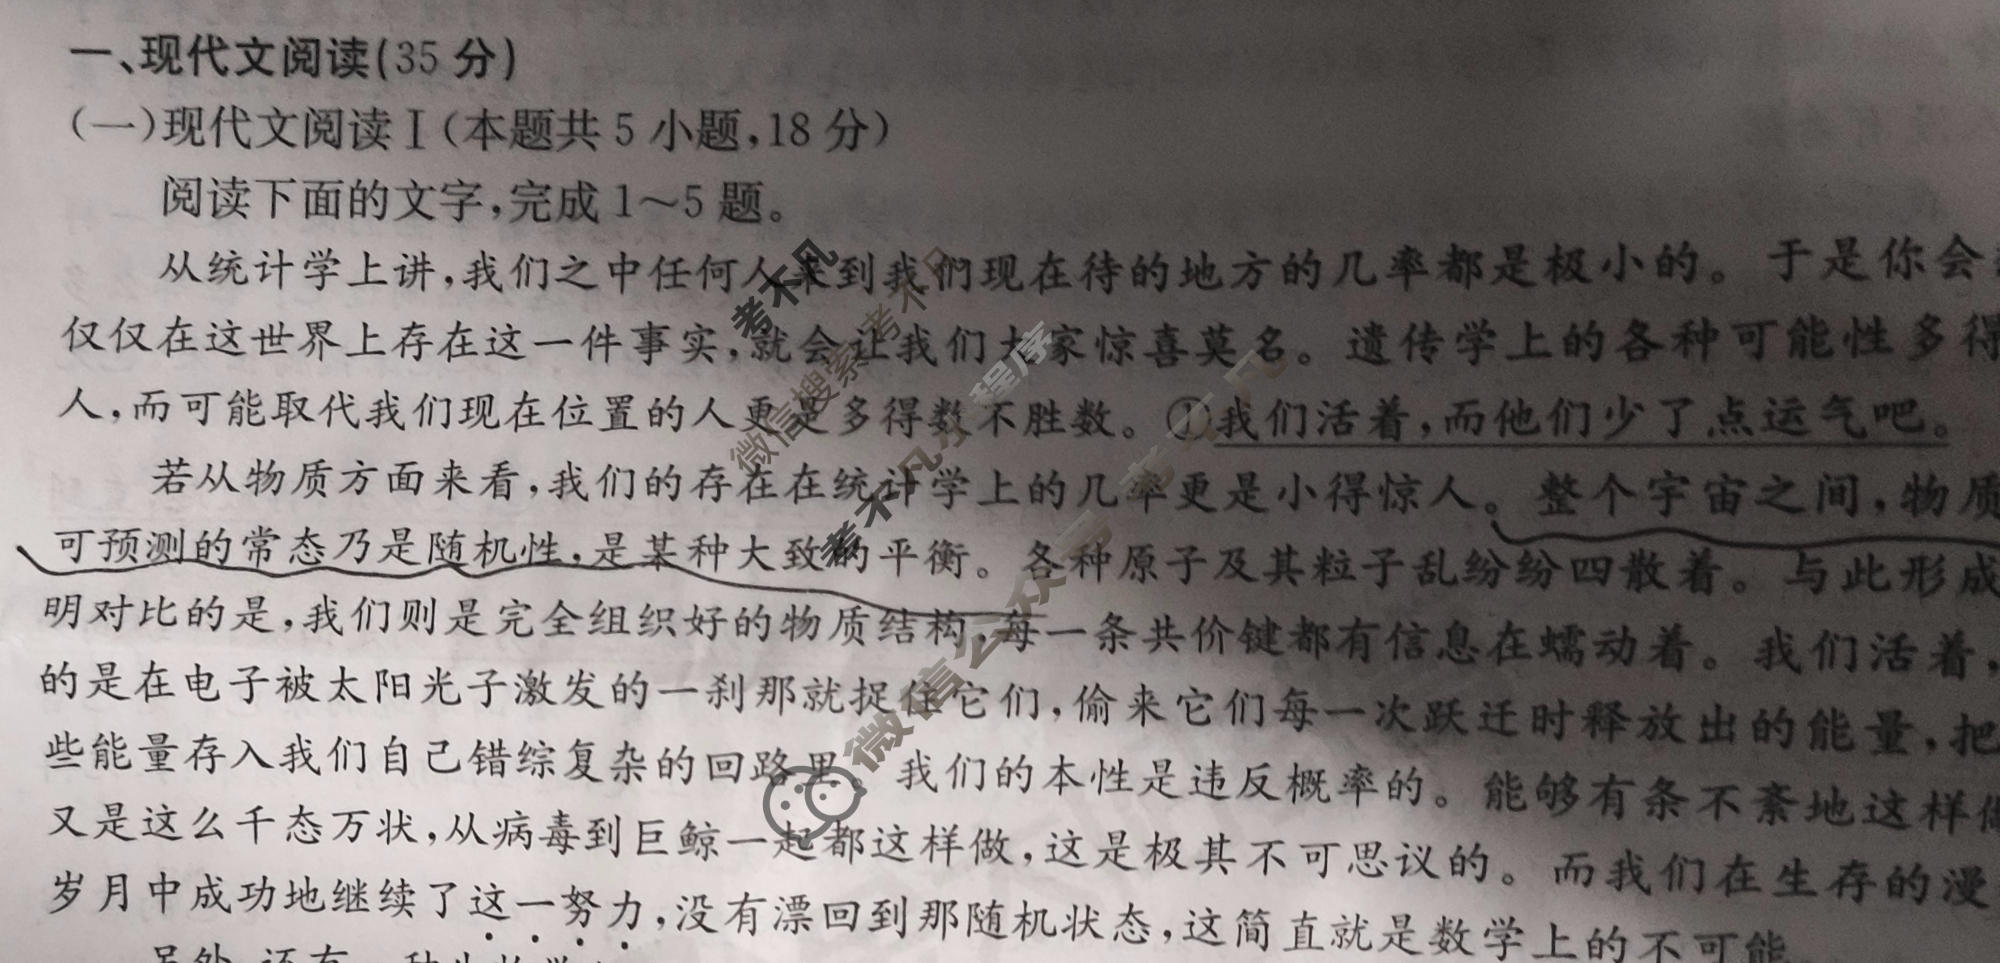 一、现代文阅读(35分)
(一)现代文阅读Ⅰ(本题共5小题,18分)
阅读下面的文字,完成1～5题。
从统计学上讲,我们之中任何人来到我们现在待的地方的几率都是极小的。于是你会
仅仅在这世界上存在这一件事实,就会让我们大家惊喜莫名。遗传学上的各种可能性多得
人,而可能取代我们现在位置的人更是多得数不胜数。①我们活着,而他们少了点运气吧。
若从物质方面来看,我们的存在在统计学上的几率更是小得惊人。整个宇宙之间,物质
可预测的常态乃是随机性,是某种大致的平衡。各种原子及其粒子乱纷纷四散着。与此形成
明对比的是,我们则是完全组织好的物质结构,每一条共价键都有信息在蠕动着。我们活着,
的是在电子被太阳光子激发的一刹那就捉住它们,偷来它们每一次跃迁时释放出的能量,把
些能量存入我们自己错综复杂的回路里。我们的本性是违反概率的。能够有条不紊地这样做
又是这么千态万状,从病毒到巨鲸一起都这样做,这是极其不可思议的。而我们在生存的漫
岁月中成功地继续了这一努力,没有漂回到那随机状态,这简直就是数学上的不可能。
另外,还有一种生物学
考不凡
微信搜索 考不凡
考不凡小程序
微信公众号 考不凡